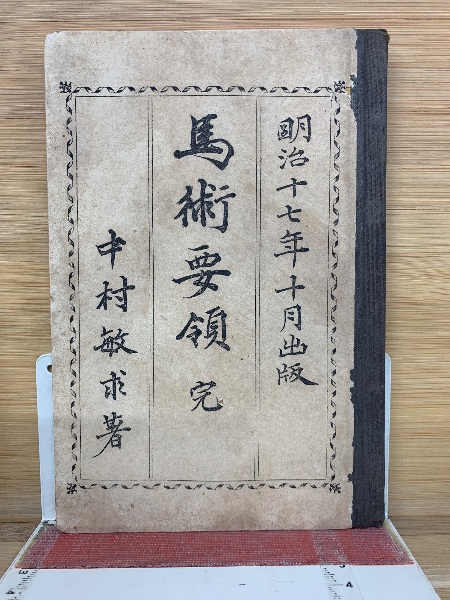 明治十七年十月出版
馬術要領 完
中村敏求著